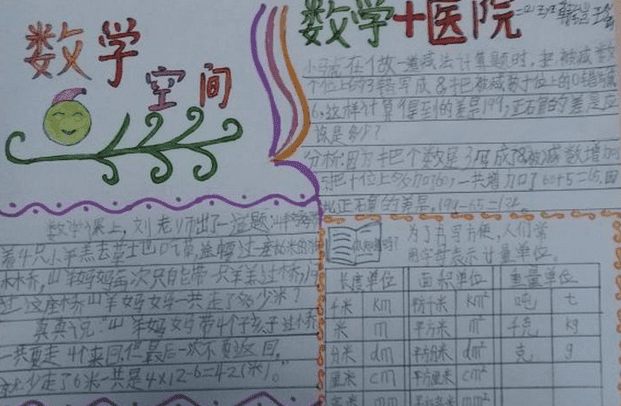 数学
空间
数学课上，刘老师出了一道题：山羊妈妈
着4只小羊羔去草士也吃草，途中要过一座长米的
木桥，山羊妈妈每次只能带一只羊羔过桥，
过这座木桥山羊妈妈一共走了多少米？
真真说：山羊妈妈带4个孩子过小桥
一共要走4个来回，但最后一次不要返回，
就少走了6米一共是4×12-6=42(米)。
数学+医院
小马虎在做一道减法计算题时，把被减数
个位上的3错写成8把被减数十位上的0错写成
6，这样计算得到的差是199，正确的差应
该是多少？
分析：因为把个数是3写成8被减数增加
5把十位上的0为60，一共增加了60+5=65，因
此正确的差是，199-65=134。
你知道吗？
为了书写方便，人们常
用字母表示计量单位。
长度单位 面积单位 重量单位
千米 km 平方千米 km² 吨 t
米 m 平方米 m² 千克 kg
分米 dm 平方分米 dm² 克 g
厘米 cm 平方厘米 cm²
毫米 mm 平方毫米 mm²